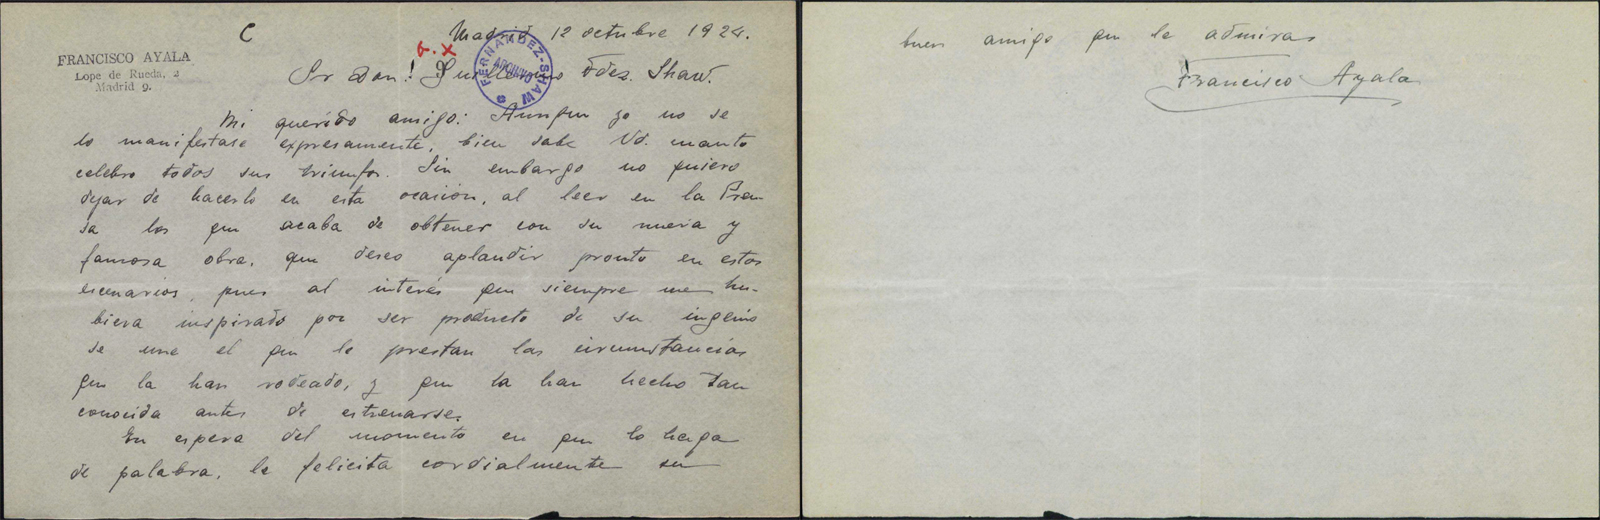 C
Madrid 12 octubre 1924.
FRANCISCO AYALA
Lope de Rueda, 2
Madrid 9.
FERNANDEZ-SHAW
ARCHIVO
Sr Don! Guillermo Fdez. Shaw.
Mi querido amigo: Aunque yo no se
lo manifestase expresamente, bien sabe Vd. cuanto
celebro todos sus triunfos. Sin embargo no quiero
dejar de hacerlo en esta ocasión, al leer en la Pren-
sa los que acaba de obtener con su nueva y
famosa obra, que deseo aplaudir pronto en estos
escenarios, pues al interés que siempre me hu-
biera inspirado por ser producto de su ingenio
se une el que le prestan las circunstancias
que la han rodeado, y que la han hecho tan
conocida antes de estrenarse.
En espera del momento en que lo haga
de palabra, le felicita cordialmente su
buen amigo que le admira
Francisco Ayala